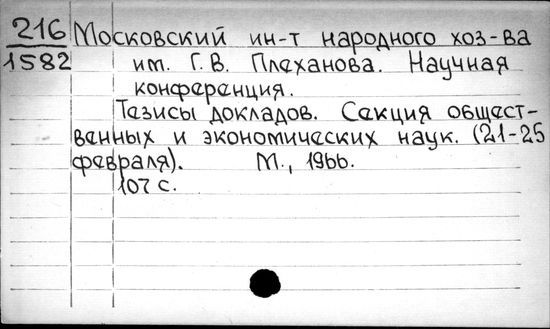 216 Московский ин-т народного хоз-ва
1582 им. Г.В. Плеханова. Научная
конференция.
Тезисы докладов. Секция общест-
венных и экономических наук. (21-25
февраля). М., 1966.
107 с.